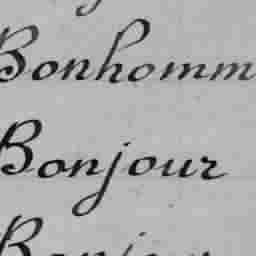 Bonhomm
Bonjour